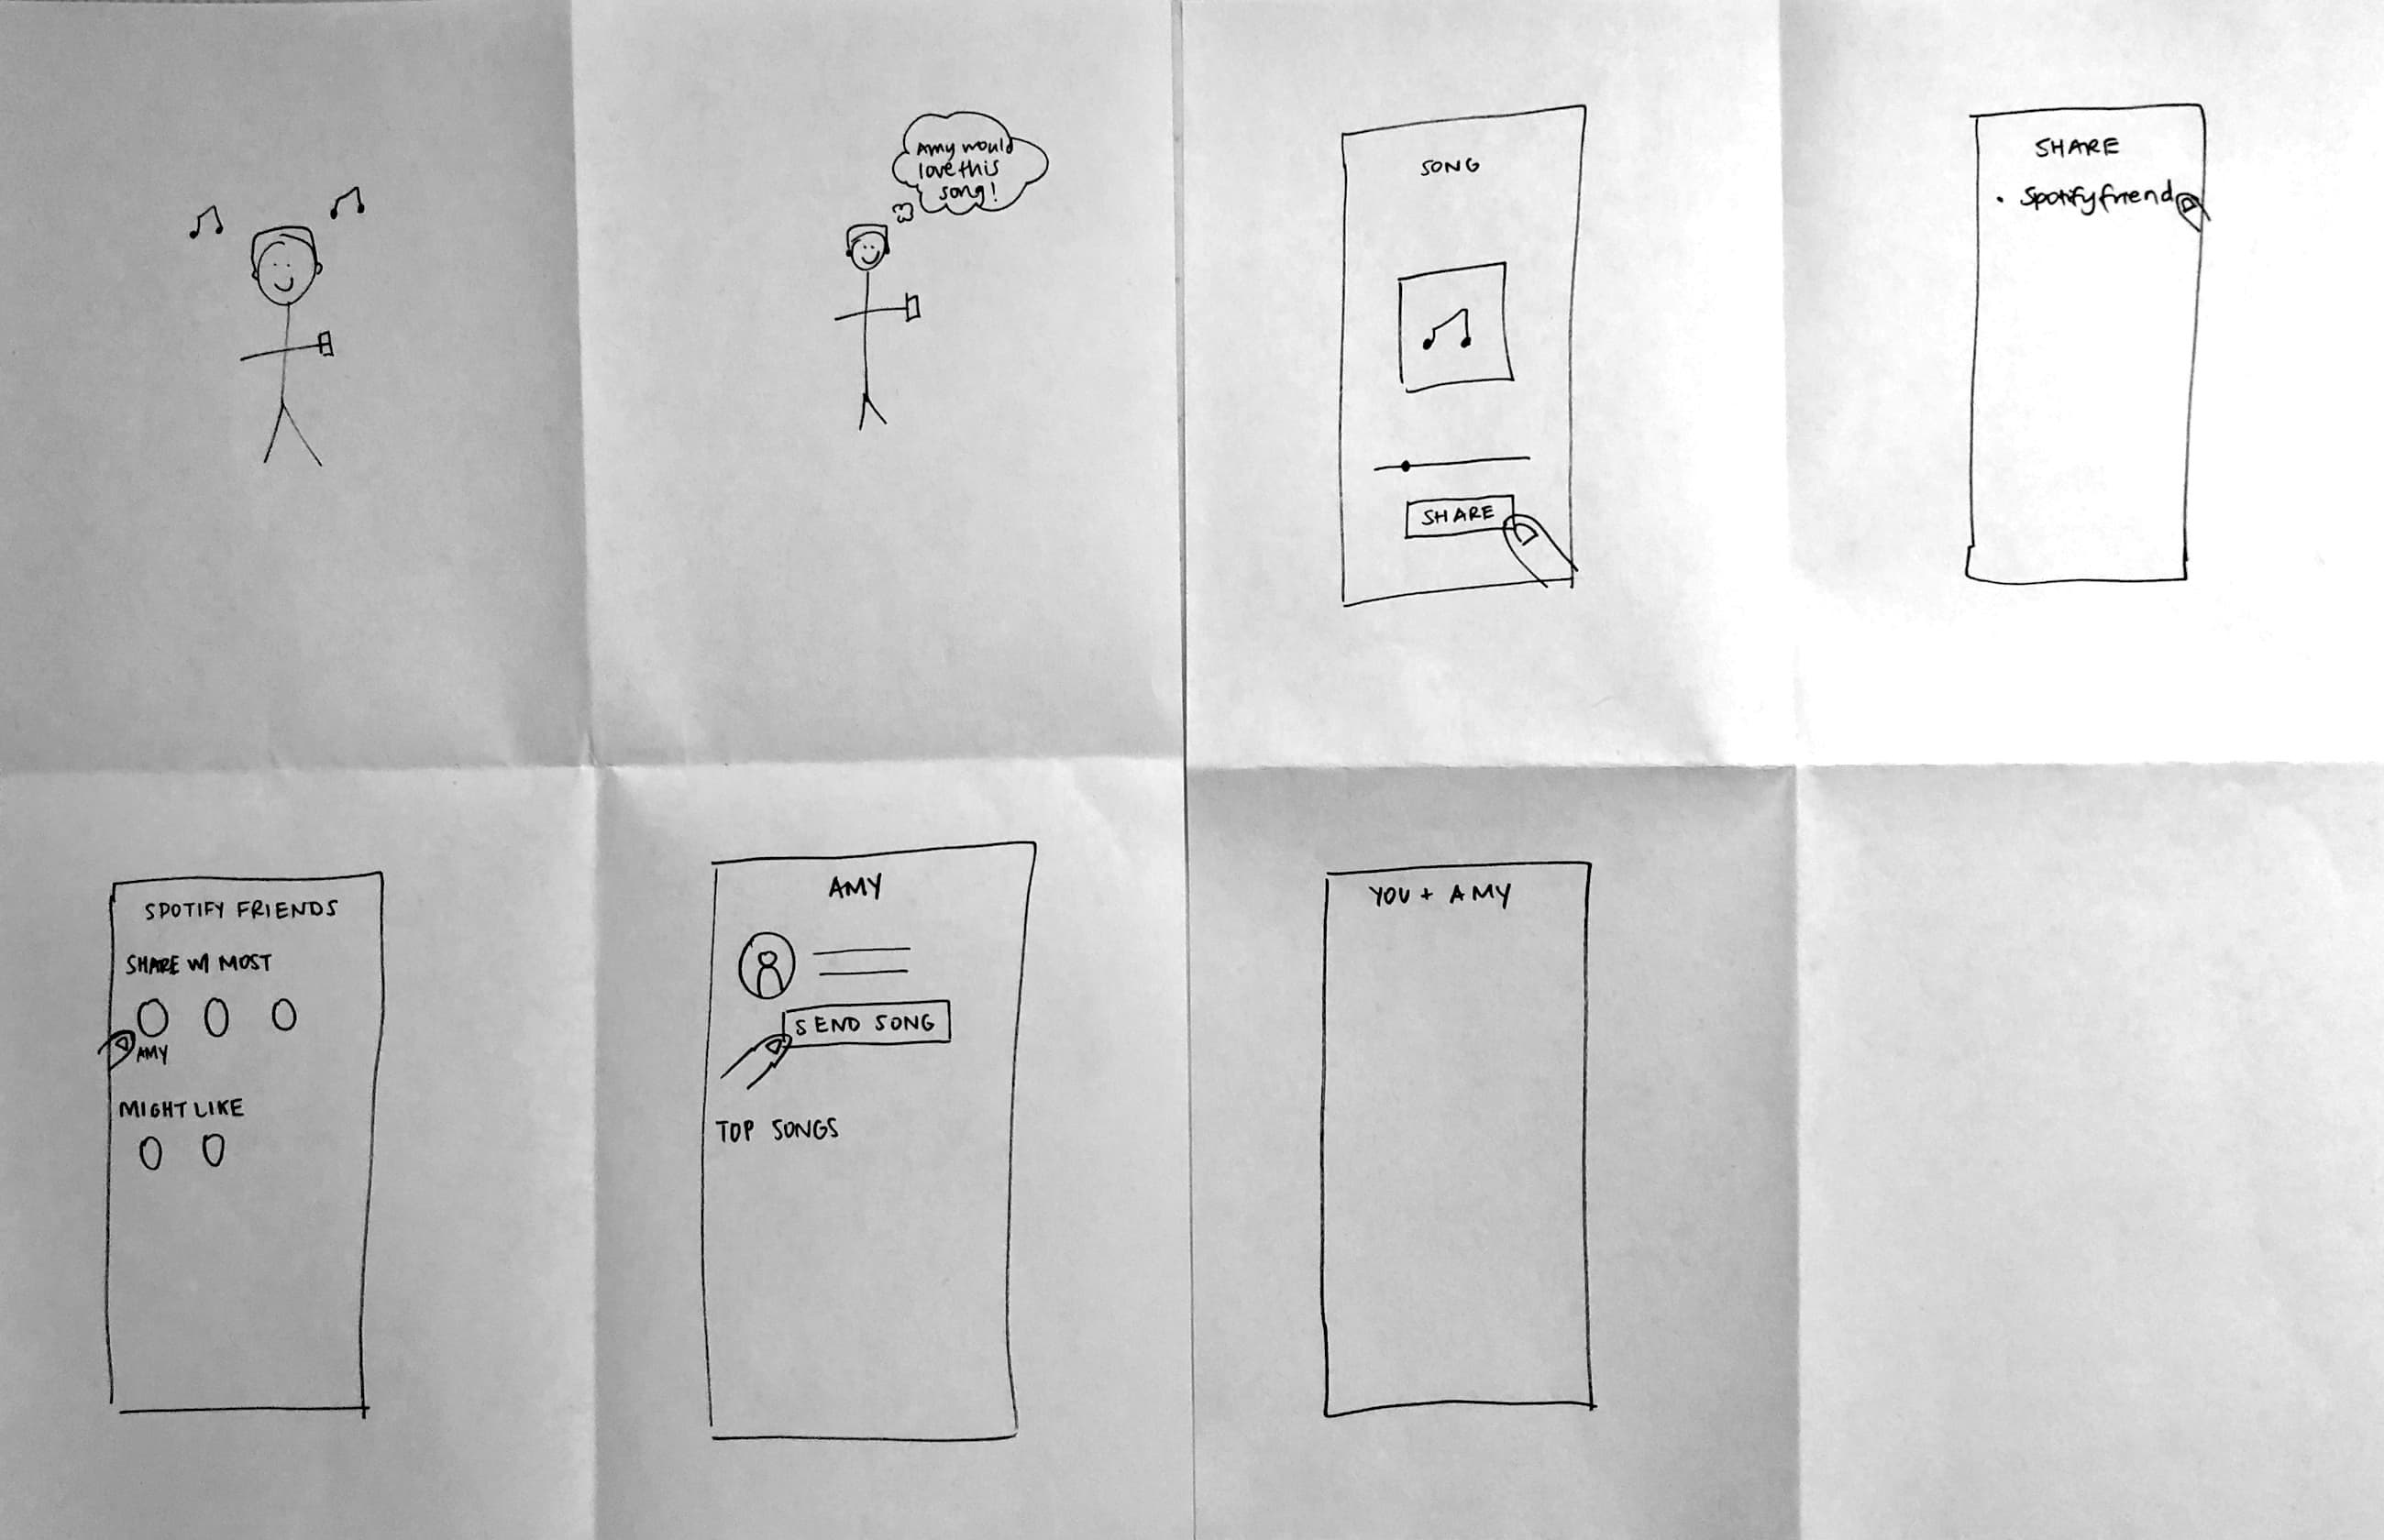 Amy would
love this
song!
SONG
SHARE
SHARE
• Spotify friend
SPOTIFY FRIENDS
SHARE W/ MOST
AMY
MIGHT LIKE
AMY
SEND SONG
TOP SONGS
YOU + AMY